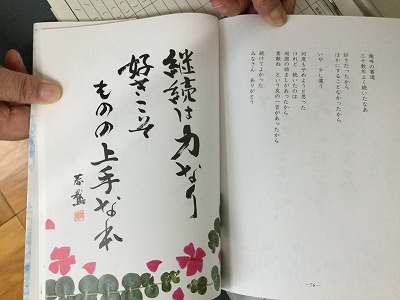 継続は力なり
好きこそ
ものの上手なれ
趣味の書道
三十数年よく続いたなあ
好きだったから
ほかにすることなかったから
いや、少し違う
何度もやめようと思った
けれど 続いたのは
周囲の励ましがあったから
素敵ね という友の一言があったから
続けてよかった
みなさん ありがとう
―76―